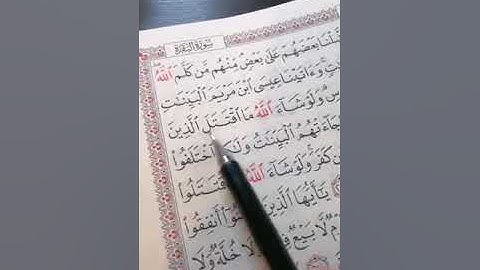 سُورَةُ البَقَرَةِ
بَعْضَهُمْ عَلَىٰ بَعْضٍ مِّنْهُم مَّن كَلَّمَ ٱللَّهُ
وَءَاتَيْنَا عِيسَى ٱبْنَ مَرْيَمَ ٱلْبَيِّنَٰتِ
وَلَوْ شَآءَ ٱللَّهُ مَا ٱقْتَتَلَ ٱلَّذِينَ
جَآءَتْهُمُ ٱلْبَيِّنَٰتُ ٱخْتَلَفُوا۟
كَفَرَ ۚ وَلَوْ شَآءَ ٱللَّهُ ٱقْتَتَلُوا۟
يَٰٓأَيُّهَا ٱلَّذِينَ أَنفِقُوا۟
لَّا بَيْعٌ خُلَّةٌ وَلَا